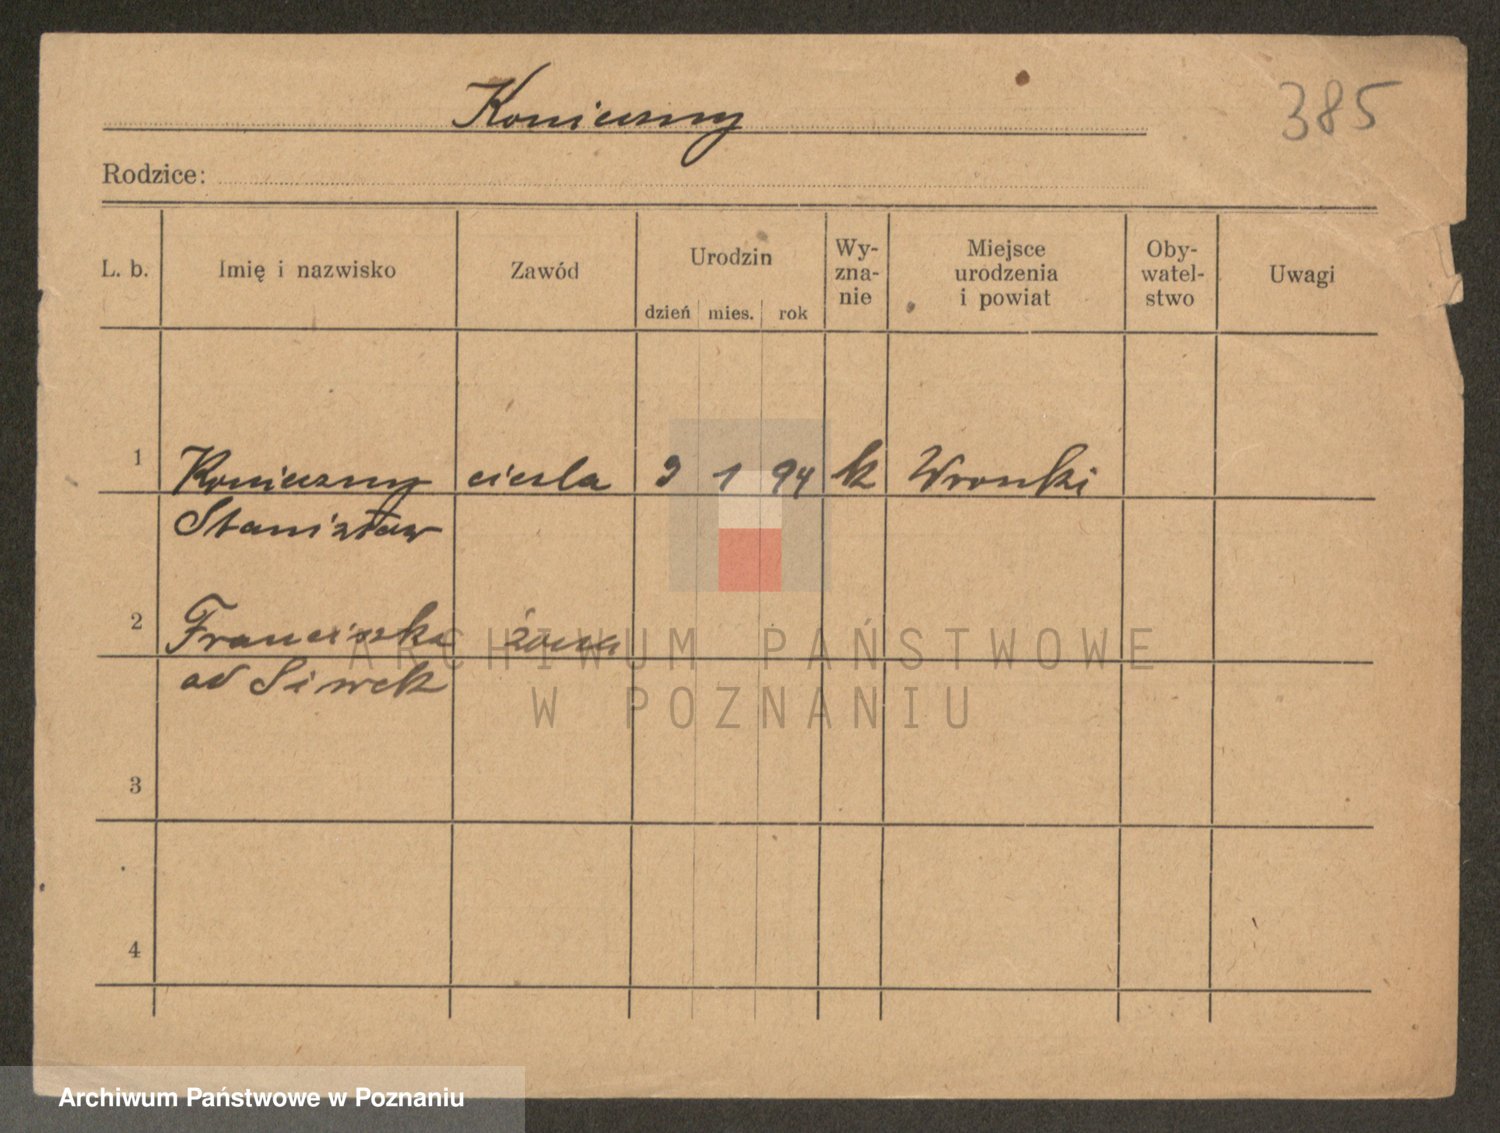 Konieczny
385
Rodzice:
L. b. Imię i nazwisko Zawód Urodzin Wy-zna-nie Miejsce urodzenia i powiat Oby-watel-stwo Uwagi
dzień mies. rok
1 Konieczny cieśla 9 1 94 k Wronki
Stanisław
2 Franciszka żona
od Siwek
3
4
ARCHIWUM PAŃSTWOWE
W POZNANIU
Archiwum Państwowe w Poznaniu